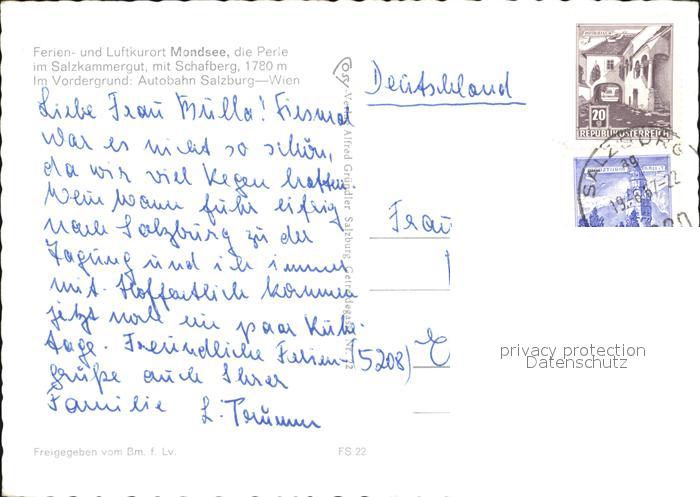 Ferien- und Luftkurort Mondsee, die Perle
im Salzkammergut, mit Schafberg, 1780 m
Im Vordergrund: Autobahn Salzburg—Wien
Liebe Frau Bulla! Diesmal
war es nicht so schön,
da wir viel Regen hatten.
Mein Mann fuhr eifrig
nach Salzburg zu der
Tagung und ich immer
mit. Hoffentlich kommen
jetzt noch ein paar Ruhe-
tage. Freundliche Ferien-
grüße auch Ihrer
Familie L. Trumm
(5208)
Freigegeben vom Bm. f. Lv.
FS 22
Cosy-Verlag Alfred Gründler, Salzburg, Getreidegasse
Deutschland
Frau
20
REPUBLIK ÖSTERREICH
SALZBURG
19.-6.67-22
privacy protection
Datenschutz